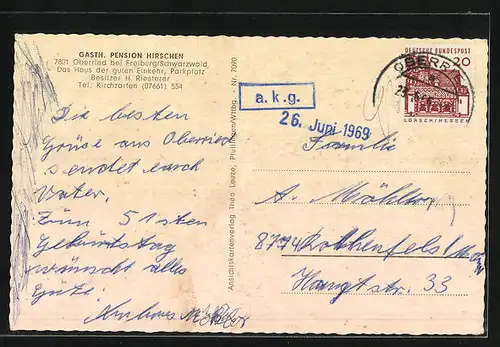 GASTH. PENSION HIRSCHEN
7801 Oberried bei Freiburg/Schwarzwald
Das Haus der guten Einkehr, Parkplatz
Besitzer H. Riesterer
Tel. Kirchzarten (07661) 554
Die besten
Grüse aus Oberried
sendet euch
Vater.
Zum 51sten
Geburtstag
wünscht alles
Gute.
Ansichtskartenverlag Theo Leuze, Pfullingen/Wttbg. Nr. 7090
a.k.g.
26. Juni 1969
DEUTSCHE BUNDESPOST
20
LORSCH/HESSEN
OBERRIED
Familie
A.
8774 Rothenfels/
Hauptstr. 33